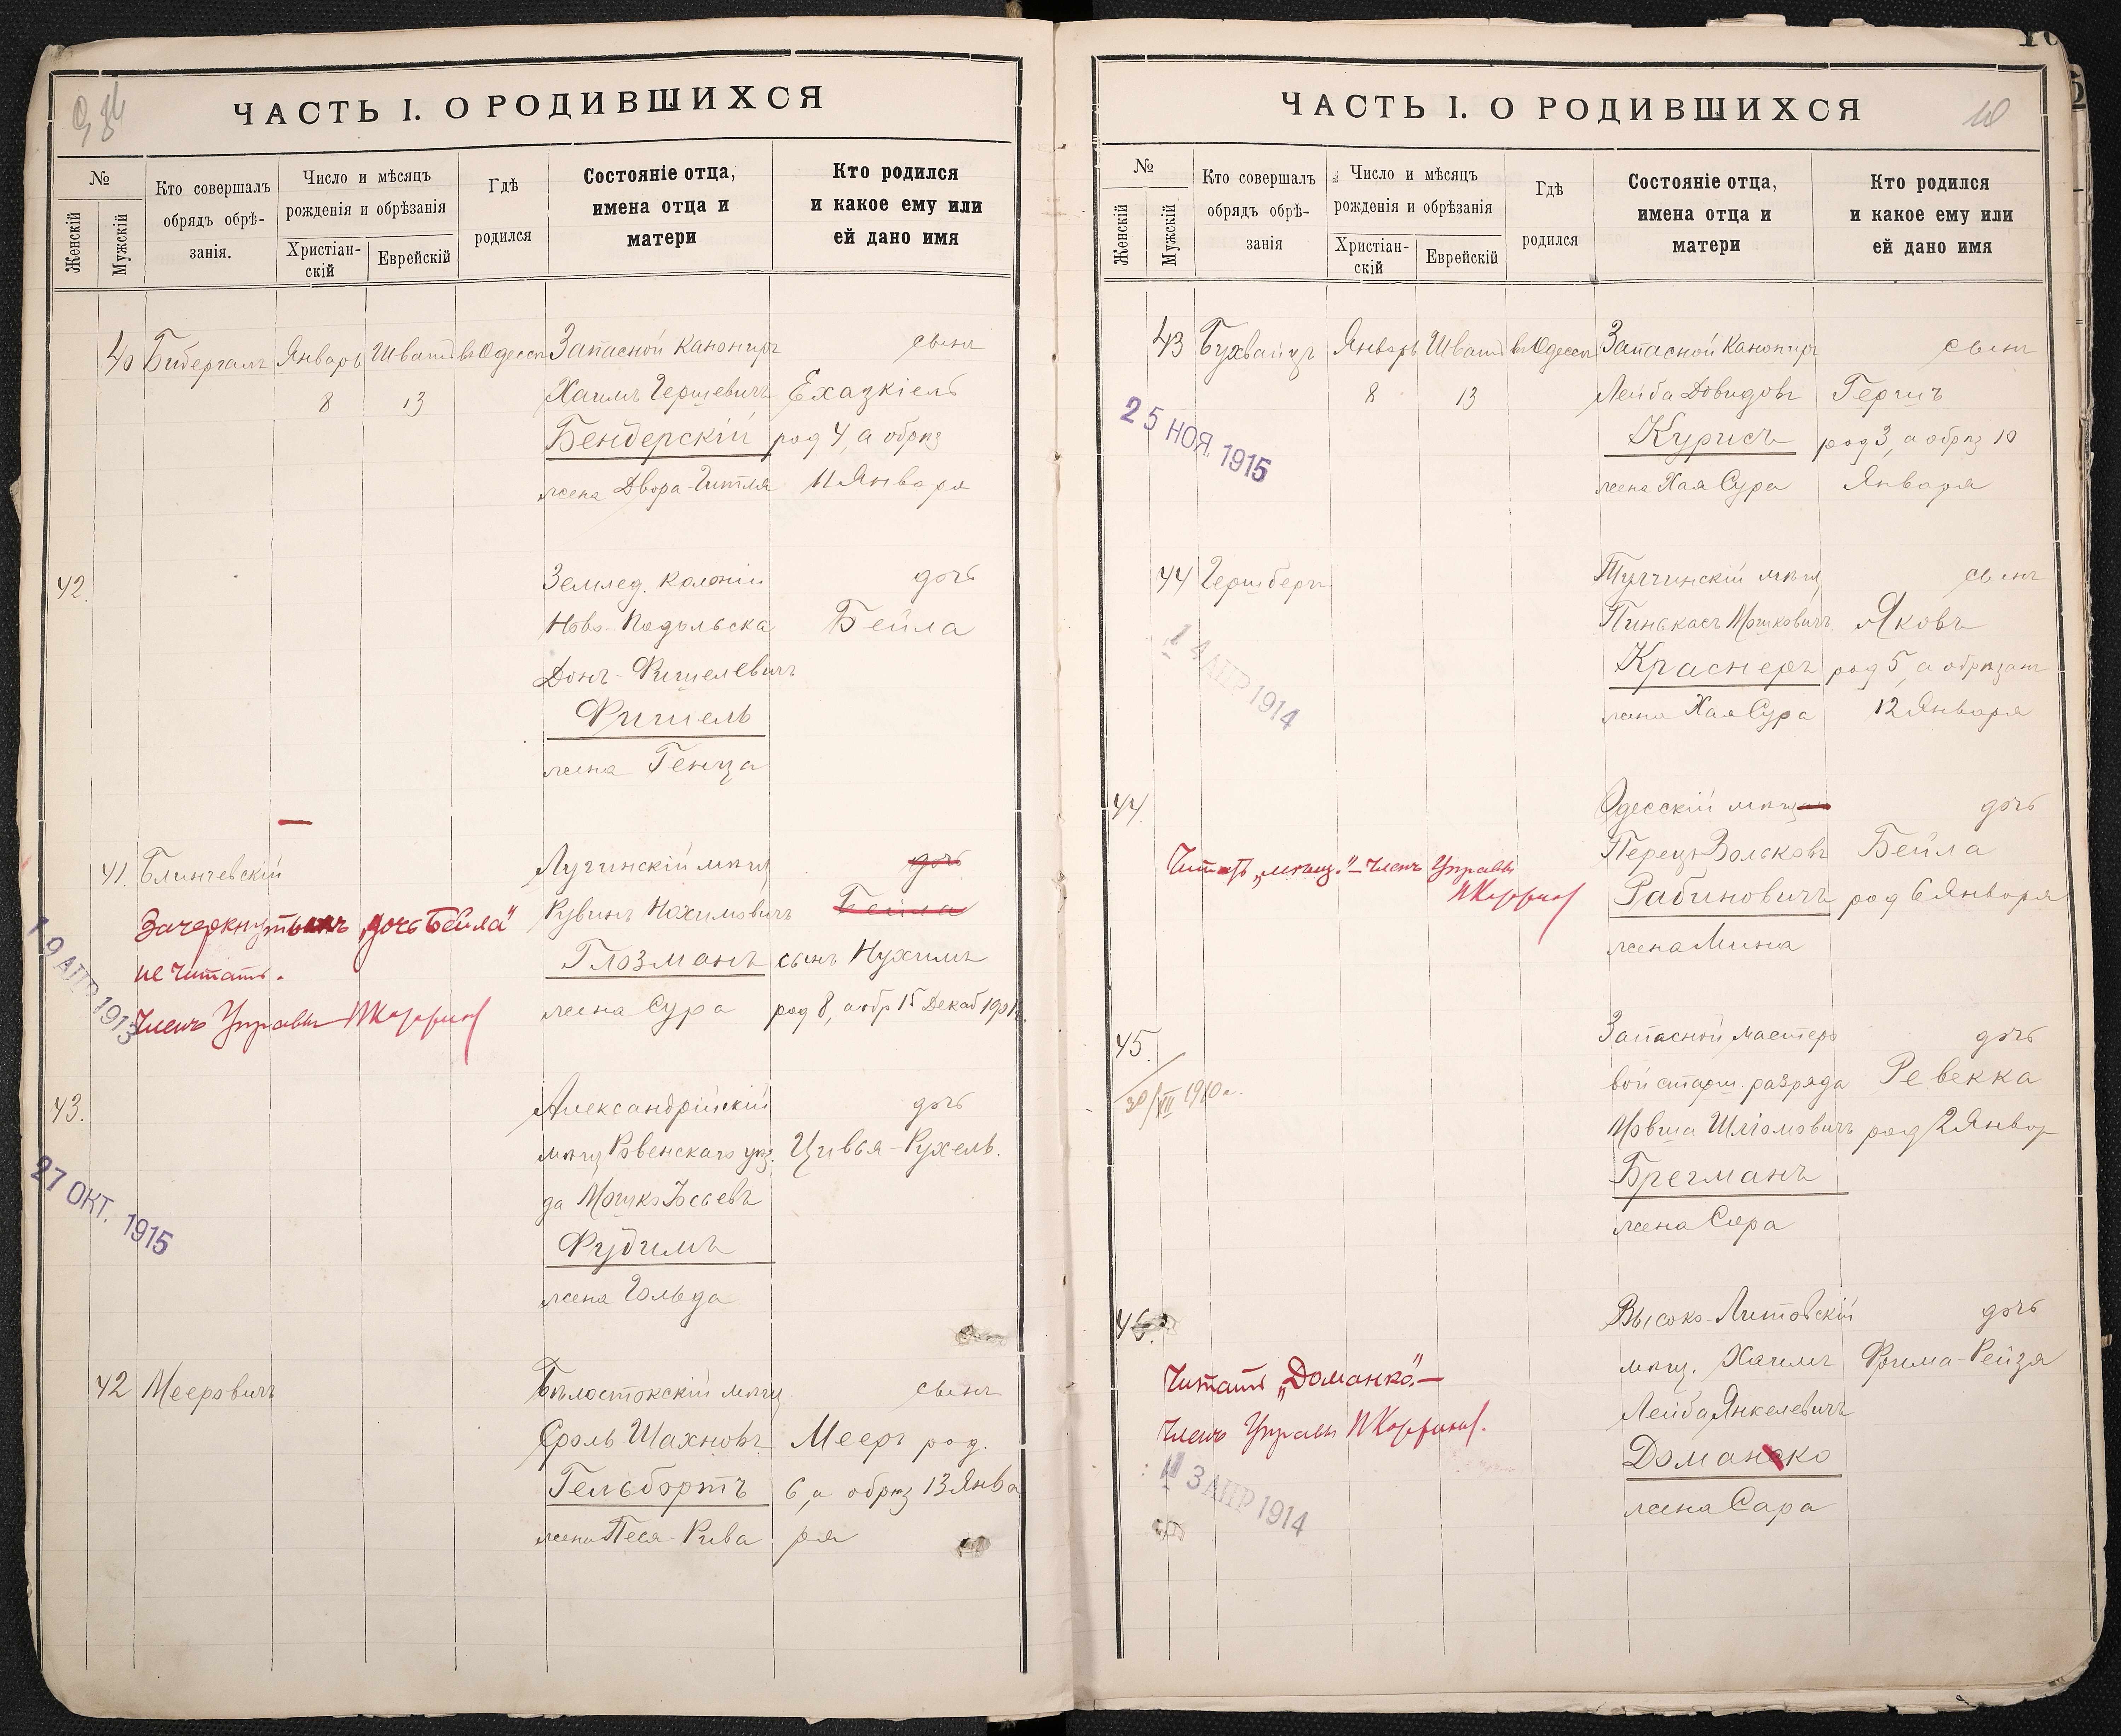 ЧАСТЬ I. О РОДИВШИХСЯ
№
Женскій
Мужскій
Кто совершалъ
обрядъ обрѣ-
занія.
Число и мѣсяцъ
рожденія и обрѣзанія
Христіан-
скій
Еврейскій
Гдѣ
родился
Состояніе отца,
имена отца и
матери
Кто родился
и какое ему или
ей дано имя
40 Бибергалъ Январь Шватъ въ Одессѣ Запасной Канониръ сынъ
8 13 Хаимъ Гершевичъ Ехазкіель
Бендерскій род 4, а обрѣз
жена Двора-Гитля 11 Января
42. Землед. колоніи дочь
Ново-Подольска Бейла
Фишелевичъ
Фишель
жена Генца
41. Блинчевскій Лугинскій мѣщ дочь
Рувинъ Нохимовичъ Бейла
Глозманъ сынъ Нухимъ
жена Сура род 8, а обр 15 Декаб 1901г.
"дочь Бейла"
не читать.
Членъ Управы
19 АПР 1913
43. Александрійскій дочь
мѣщ Ровенскаго уѣз Цивья-Рухель.
да Мошко Іосьевъ
Фудимъ
жена Гольда
27 ОКТ. 1915
42 Мееровичъ Бѣлостокскій мѣщ сынъ
Сроль Шахновъ Мееръ род.
Гельбортъ 6, а обрѣз 13 Янва
жена Песя-Рива ря
ЧАСТЬ I. О РОДИВШИХСЯ
10
№
Женскій
Мужскій
Кто совершалъ
обрядъ обрѣ-
занія
Число и мѣсяцъ
рожденія и обрѣзанія
Христіан-
скій
Еврейскій
Гдѣ
родился
Состояніе отца,
имена отца и
матери
Кто родился
и какое ему или
ей дано имя
43 Бухвайцъ Январь Шватъ въ Одессѣ Запасной Канониръ сынъ
8 13 Лейба Довидовъ Гершъ
Курисъ род 3, а обрѣз 10
жена Хая Сура Января
25 НОЯ. 1915
44 Гершбергъ Тульчинскій мѣщ сынъ
Пинькасъ Мошковичъ Яковъ
Краснеръ род 5, а обрѣзанъ
жена Хая Сура 12 Января
14 АПР 1914
44. Одесскій мѣщ дочь
Перецъ Волковъ Бейла
Рабиновичъ род 6 Января
жена Мина
Читать „мѣщ." – Членъ Управы
45. Запасной мастеро дочь
вой старш. разряда Ревекка
Мовша Шліомовичъ род 2 Январ
Брегманъ
жена Сура
30/XII 1910 г.
46. Высоко-Литовскій дочь
мѣщ. Хаимъ Фрима-Рейзя
Лейба Янкелевичъ
Доманско
жена Сара
Читать „Доманко". –
Членъ Управы
3 АПР 1914